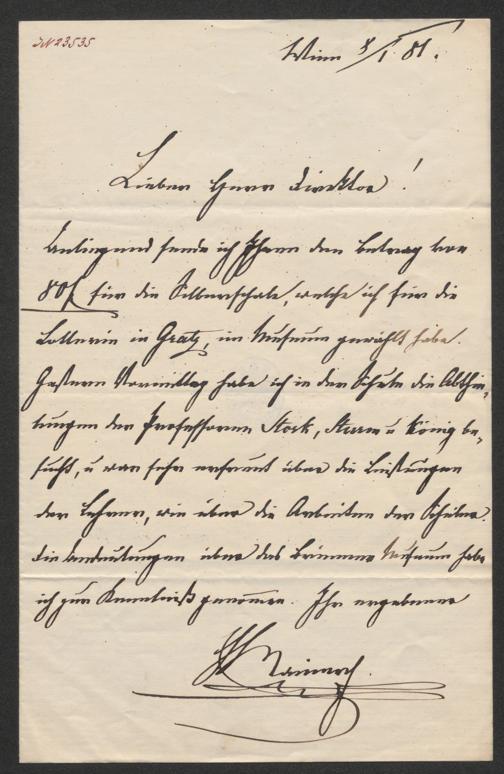 IN 23535
Wien 8/1 81.
Lieber Herr Direktor!
Anliegend sende ich Ihnen den Betrag von
80f für die Silberschale, welche ich für die
Lotterie in Gratz, im Museum gewählt habe.
Gestern Vormittag habe ich in der Schule die Abthei-
lungen der Professoren Stork, Sturm u König be-
sucht, u war sehr erfreut über die Leistungen
der Lehrer, wie über die Arbeiten der Schüler.
Die Andeutungen über das Brünner Museum habe
ich zur Kenntniß genommen. Ihr ergebener